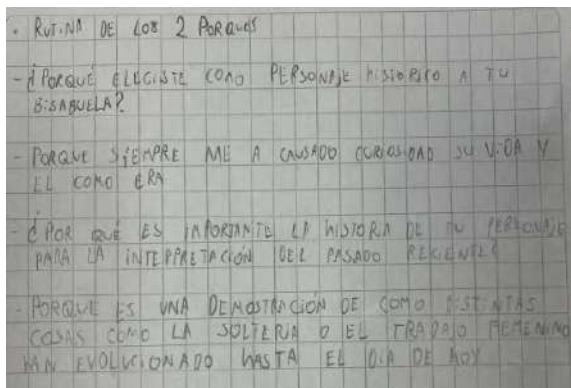 · RUTINA DE LOS 2 PORQUES
- ¿PORQUÉ ELEGISTE COMO PERSONAJE HISTORICO A TU
BISABUELA?
- PORQUE SIEMPRE ME A CAUSADO CURIOSIDAD SU VIDA Y
EL COMO ERA
- ¿POR QUÉ ES IMPORTANTE LA HISTORIA DE TU PERSONAJE
PARA LA INTERPRETACIÓN DEL PASADO RECIENTE?
- PORQUE ES UNA DEMOSTRACIÓN DE COMO DISTINTAS
COSAS COMO LA SOLTERIA O EL TRABAJO FEMENINO
HAN EVOLUCIONADO HASTA EL DIA DE HOY